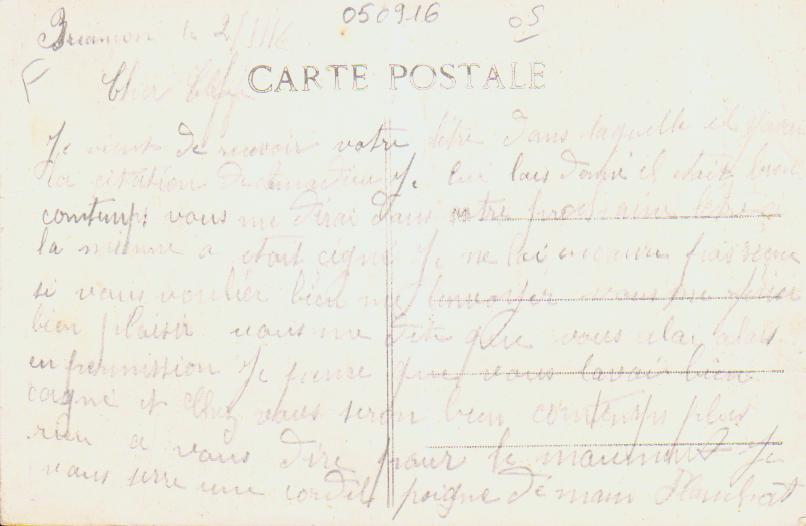 050916 05
Briançon le 2/9/16
Cher
CARTE POSTALE
Je vient de recevoir votre letre dans laquelle il y avai
la citation Je lui lais doné il etait bien
contemps vous me dirai dans votre prochaine letre si
la mienne a etait cigné Je ne lai encaure pas reçue
si vous voulier bien me lenvoyer vous me feriez
bien plaisir vous me dite que vous alai
en permission Je pence que vous lavoir bien
cagné et chez vous seron bien contemps plus
rien a vous dire pour le maument Je
vous serre une cordil poigné de main